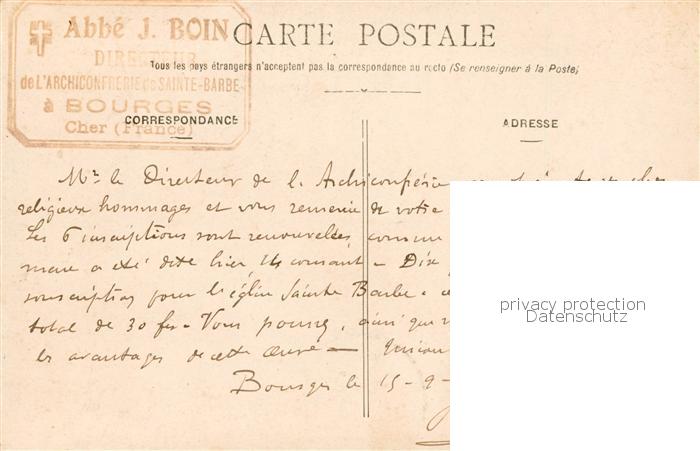 Abbé J. BOIN
DIRECTEUR
de L'ARCHICONFRERIE de SAINTE-BARBE
à BOURGES
Cher (France)
CARTE POSTALE
Tous les pays étrangers n'acceptent pas la correspondance au recto (Se renseigner à la Poste)
CORRESPONDANCE
ADRESSE
Mr le Directeur de l. Archiconfrérie
religieux hommages et vous remercie de votre
Les 6 inscriptions sont renouvelées, comme
messe a été dite hier 14 courant - Dix
souscriptions pour l'église Sainte Barbe
total de 30 frs - Vous pouvez, ainsi que
les avantages de cette œuvre -
Bourges le 15-9-
privacy protection
Datenschutz